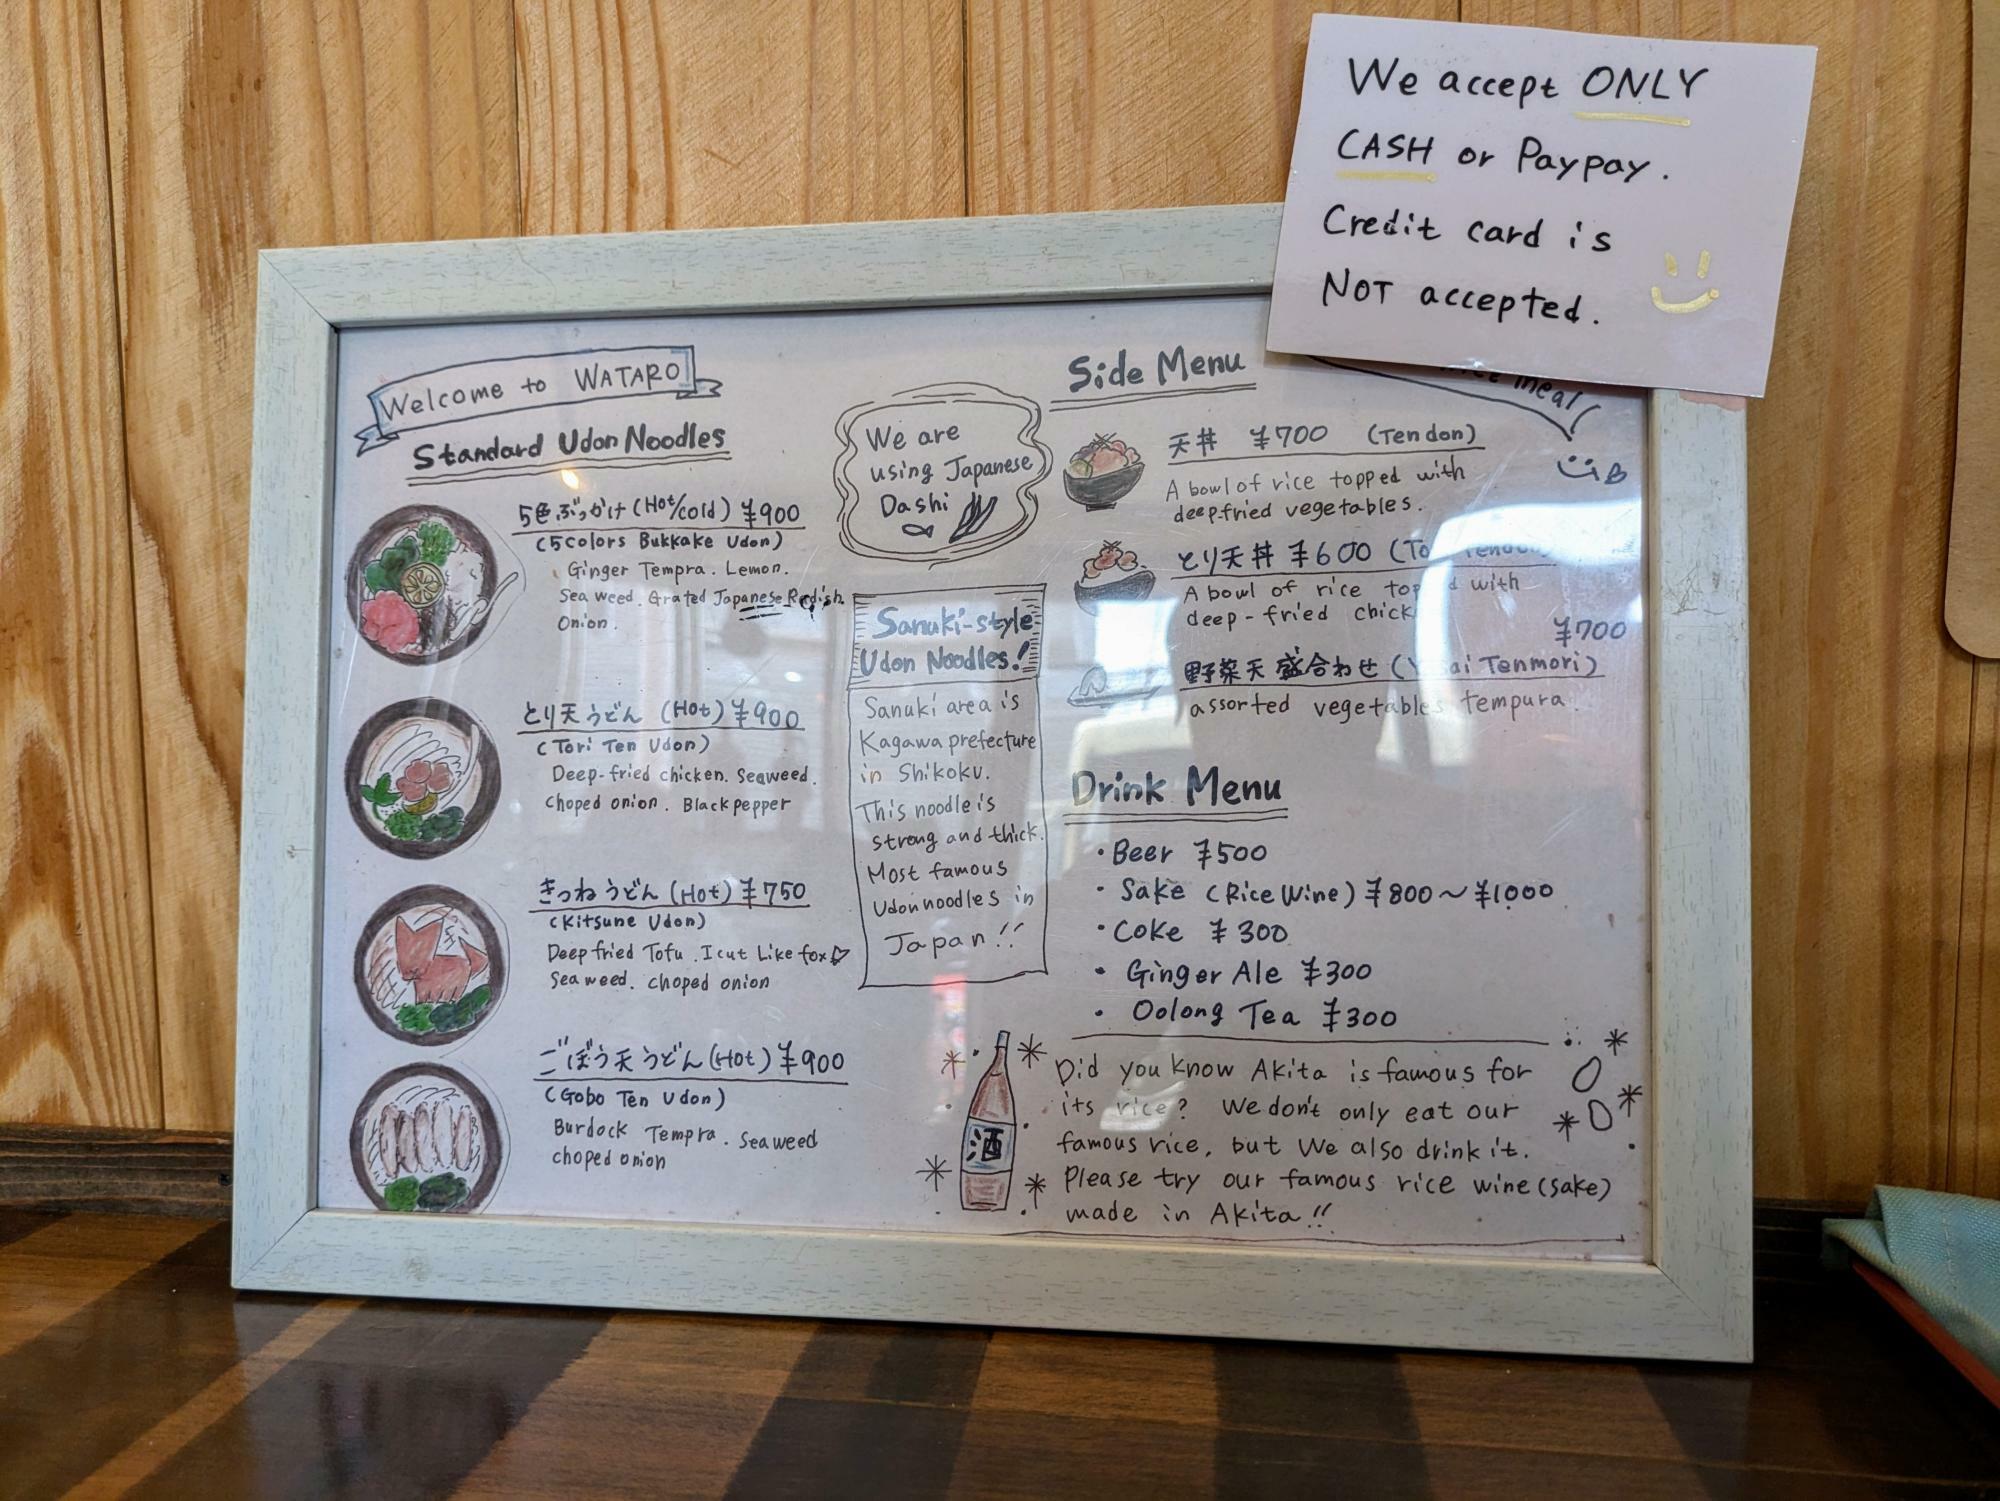 We accept ONLY
CASH or Paypay.
Credit card is
NOT accepted.
Welcome to WATARO
Standard Udon Noodles
5色ぶっかけ (Hot/cold) ¥900
(5colors Bukkake Udon)
Ginger Tempra. Lemon.
Sea weed. Grated Japanese Radish.
Onion.
とり天うどん (Hot) ¥900
(Tori Ten Udon)
Deep-fried chicken. Seaweed.
choped onion. Black pepper
きつねうどん (Hot) ¥750
(Kitsune Udon)
Deep fried Tofu. I cut Like fox
Sea weed. choped onion
ごぼう天うどん (Hot) ¥900
(Gobo Ten Udon)
Burdock Tempra. Seaweed
choped onion
We are
using Japanese
Dashi
Sanuki-style
Udon Noodles!
Sanuki area is
Kagawa prefecture
in Shikoku.
This noodle is
strong and thick.
Most famous
Udon noodles in
Japan!!
Side Menu
meal
天丼 ¥700 (Tendon)
A bowl of rice topped with
deep-fried vegetables.
とり天丼 ¥600
A bowl of rice with
deep-fried
¥700
野菜天盛合わせ Tenmori)
assorted vegetables tempura.
Drink Menu
・Beer ¥500
・Sake (Rice Wine) ¥800～¥1000
・Coke ¥300
・Ginger Ale ¥300
・Oolong Tea ¥300
酒
Did you know Akita is famous for
its rice? We don't only eat our
famous rice, but We also drink it.
Please try our famous rice wine (sake)
made in Akita!!